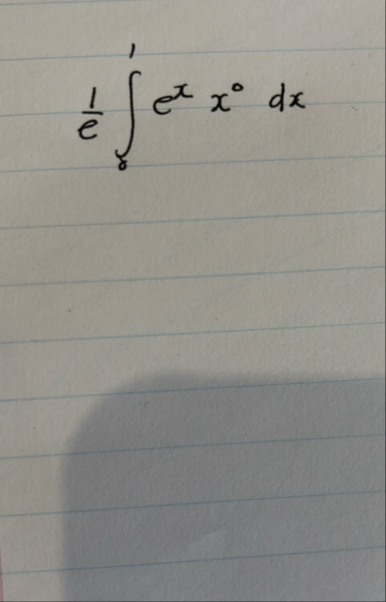 \frac{1}{e} \int_{0}^{1} e^{x} x^{0} dx